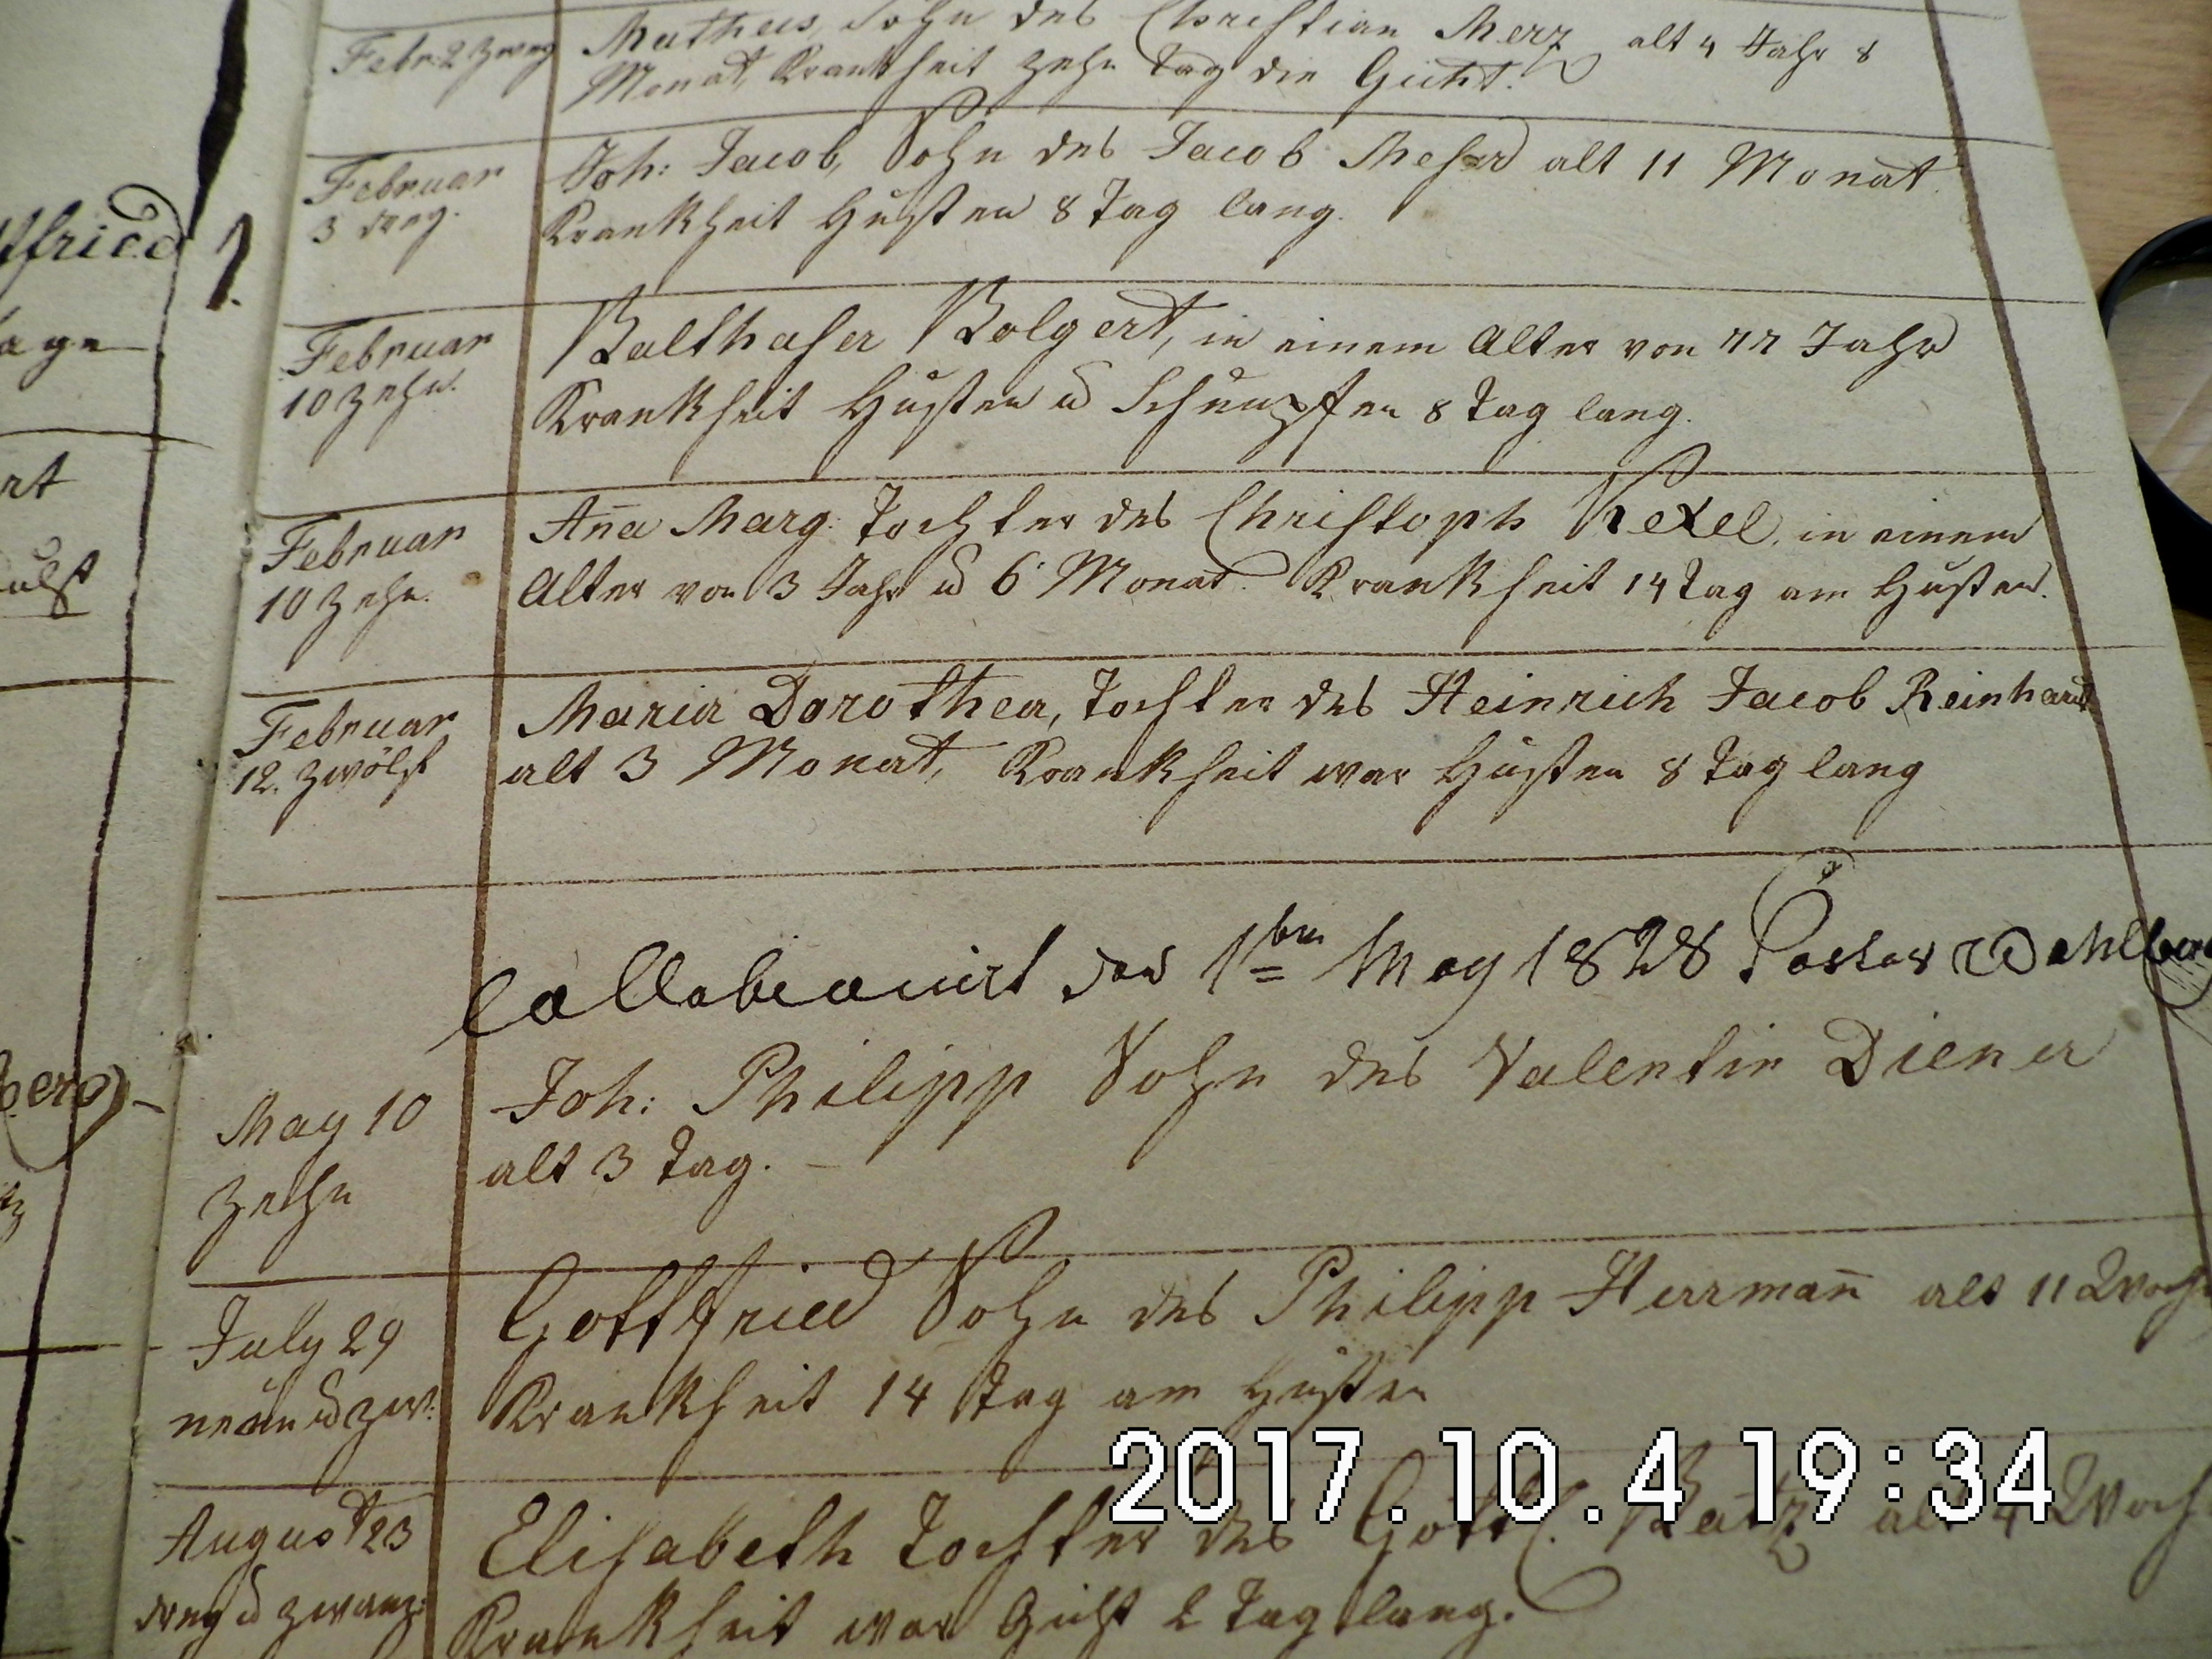 Febr: 2 zwey
Matheis, Sohn des Christian Merz alt 4 Jahr 8
Monat, Krankheit zehn Tag die Gicht.
Februar
3 drey.
Joh: Jacob, Sohn des Jacob alt 11 Monat
Krankheit Husten 8 Tag lang.
Februar
10 zehn.
Balthaser Bolgert, in einem Alter von 77 Jahr
Krankheit Husten u Schnupfen 8 Tag lang.
Februar
10 zehn.
Aña Marg: Tochter des Christoph Kexel, in einem
Alter von 3 Jahr u 6 Monat. Krankheit 14 Tag am Husten.
Februar
12. zwölf
Maria Dorothea, Tochter des Heinrich Jacob Reinhard
alt 3 Monat, Krankheit war Husten 8 Tag lang
den 1ten May 1828 Pastor
May 10
zehn
Joh: Philipp Sohn des Valentin Diener
alt 3 Tag. –
July 29
neun u zw:
Gottfried Sohn des Philipp Herrmañ alt 11 Woch
Krankheit 14 Tag am Husten
August 23
drey u zwanz:
Elisabeth Tochter des Gottl. Batz alt 4 Woch
Krankheit war Gicht 2 Tag lang.
2017.10.4 19:34